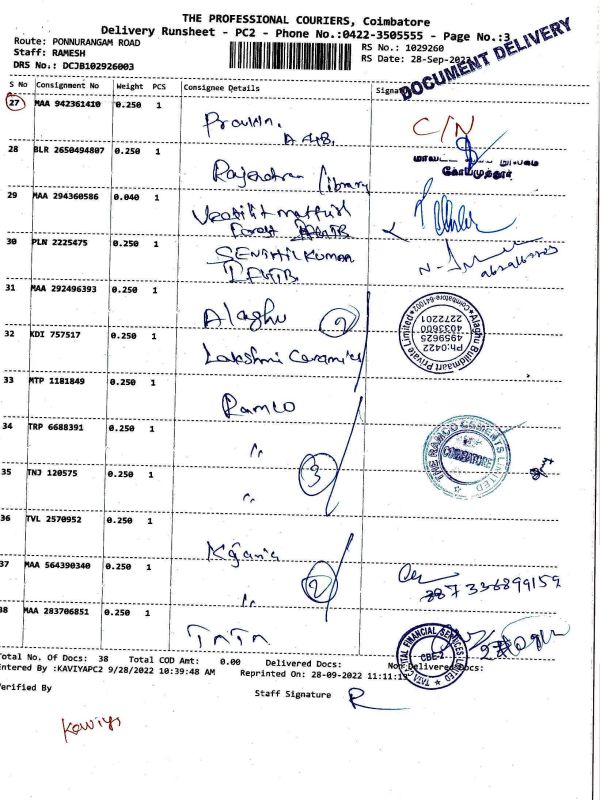 THE PROFESSIONAL COURIERS, Coimbatore
Delivery Runsheet - PC2 - Phone No.:0422-3505555 - Page No.:3
Route: PONNURANGAM ROAD
RS No.: 1029260
Staff: RAMESH
RS Date: 28-Sep-2022
DRS No.: DCJB102926003
DOCUMENT DELIVERY
S No Consignment No Weight PCS Consignee Details Signat
27 MAA 942361410 0.250 1
C/N
28 BLR 2650494807 0.250 1
Rajendran Library
கோயமுத்தூர்
29 MAA 294360586 0.040 1
Forest
30 PLN 2225475 0.250 1
SENTHILKUMAR
IFGTB
31 MAA 292496393 0.250 1
Alaghu 2
Alaghu Buildmaart Private Limited
Coimbatore-641002
Ph:0422
4959625
4033600
2272201
32 KDI 757517 0.250 1
Lakshmi Ceramics
33 MTP 1181849 0.250 1
Ramco
34 TRP 6688391 0.250 1
"
3
THE RAMCO CEMENTS LIMITED
COIMBATORE
35 TNJ 120575 0.250 1
"
36 TVL 2570952 0.250 1
37 MAA 564390340 0.250 1
2
"
38 MAA 283706851 0.250 1
TATA
TATA CAPITAL FINANCIAL SERVICES LIMITED
CBE-2
Total No. Of Docs: 38 Total COD Amt: 0.00 Delivered Docs: Non Delivered Docs:
Entered By :KAVIYAPC2 9/28/2022 10:39:48 AM Reprinted On: 28-09-2022 11:11:13
Verified By
Staff Signature R
Kaviya